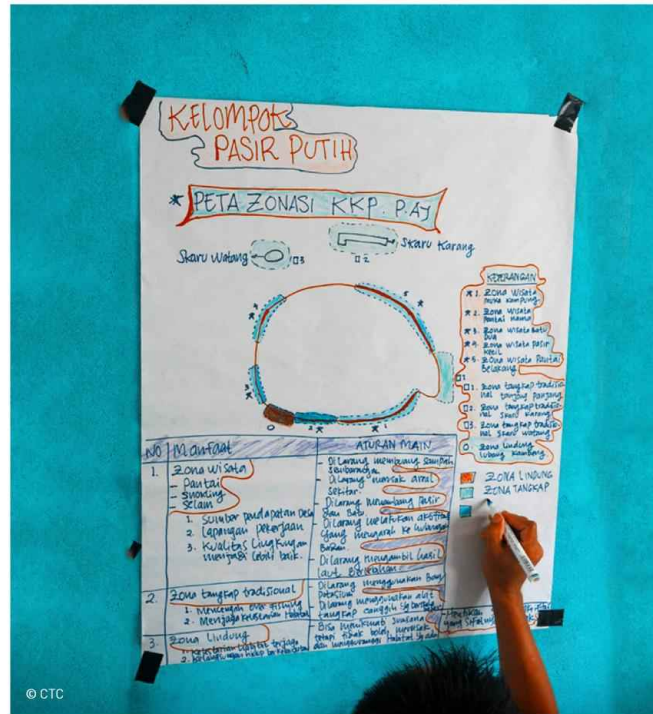 KELOMPOK
PASIR PUTIH
* PETA ZONASI KKP. P. AY
Skaru Watang
□3
□2
Skaru Karang
KETERANGAN
*1. Zona wisata
muka kampung
*2. Zona wisata
pantai nama
*3. Zona wisata batu
Dua
*4. Zona wisata pasir
kecil
*5. Zona wisata pantai
Belakang
□1
□1. Zona tangkap tradisio
nal tanjung panjang
□2. Zona tangkap tradisio
nal skaru karang
□3. Zona tangkap tradisio
nal skaru watang
O Zona lindung
lubang kambing
ZONA LINDUNG
ZONA TANGKAP
NO
Manfaat
ATURAN MAIN
1. Zona wisata
- Pantai
- Snorkling
- Selam
1. Sumber pendapatan Desa
2. Lapangan pekerjaan
3. Kualitas lingkungan
menjadi lebih baik.
- Dilarang membuang sampah
sembarangan
- Dilarang masuk areal
sekitar.
- Dilarang menambang pasir
dan batu
- Dilarang melakukan aktifitas
yang mengarah ke
- Dilarang mengambil hasil
laut berlebihan
2. Zona tangkap tradisional
1. Mencegah over fishing
2. Menjaga habitat
- Dilarang menggunakan Bom
Potasium
- Dilarang menggunakan alat
tangkap canggih
3. Zona Lindung
- Bisa menikmati
tetapi tidak boleh merusak
dan
yang
© CTC